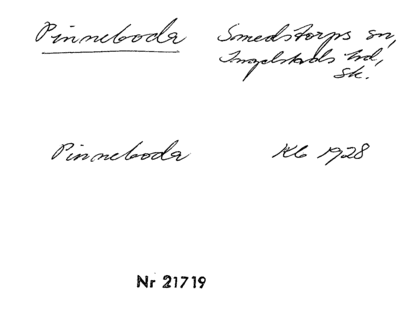 Pinneboda Smedstorps sn,
Ingelstads hd,
Sk.
Pinneboda Kb 1928
Nr 21719